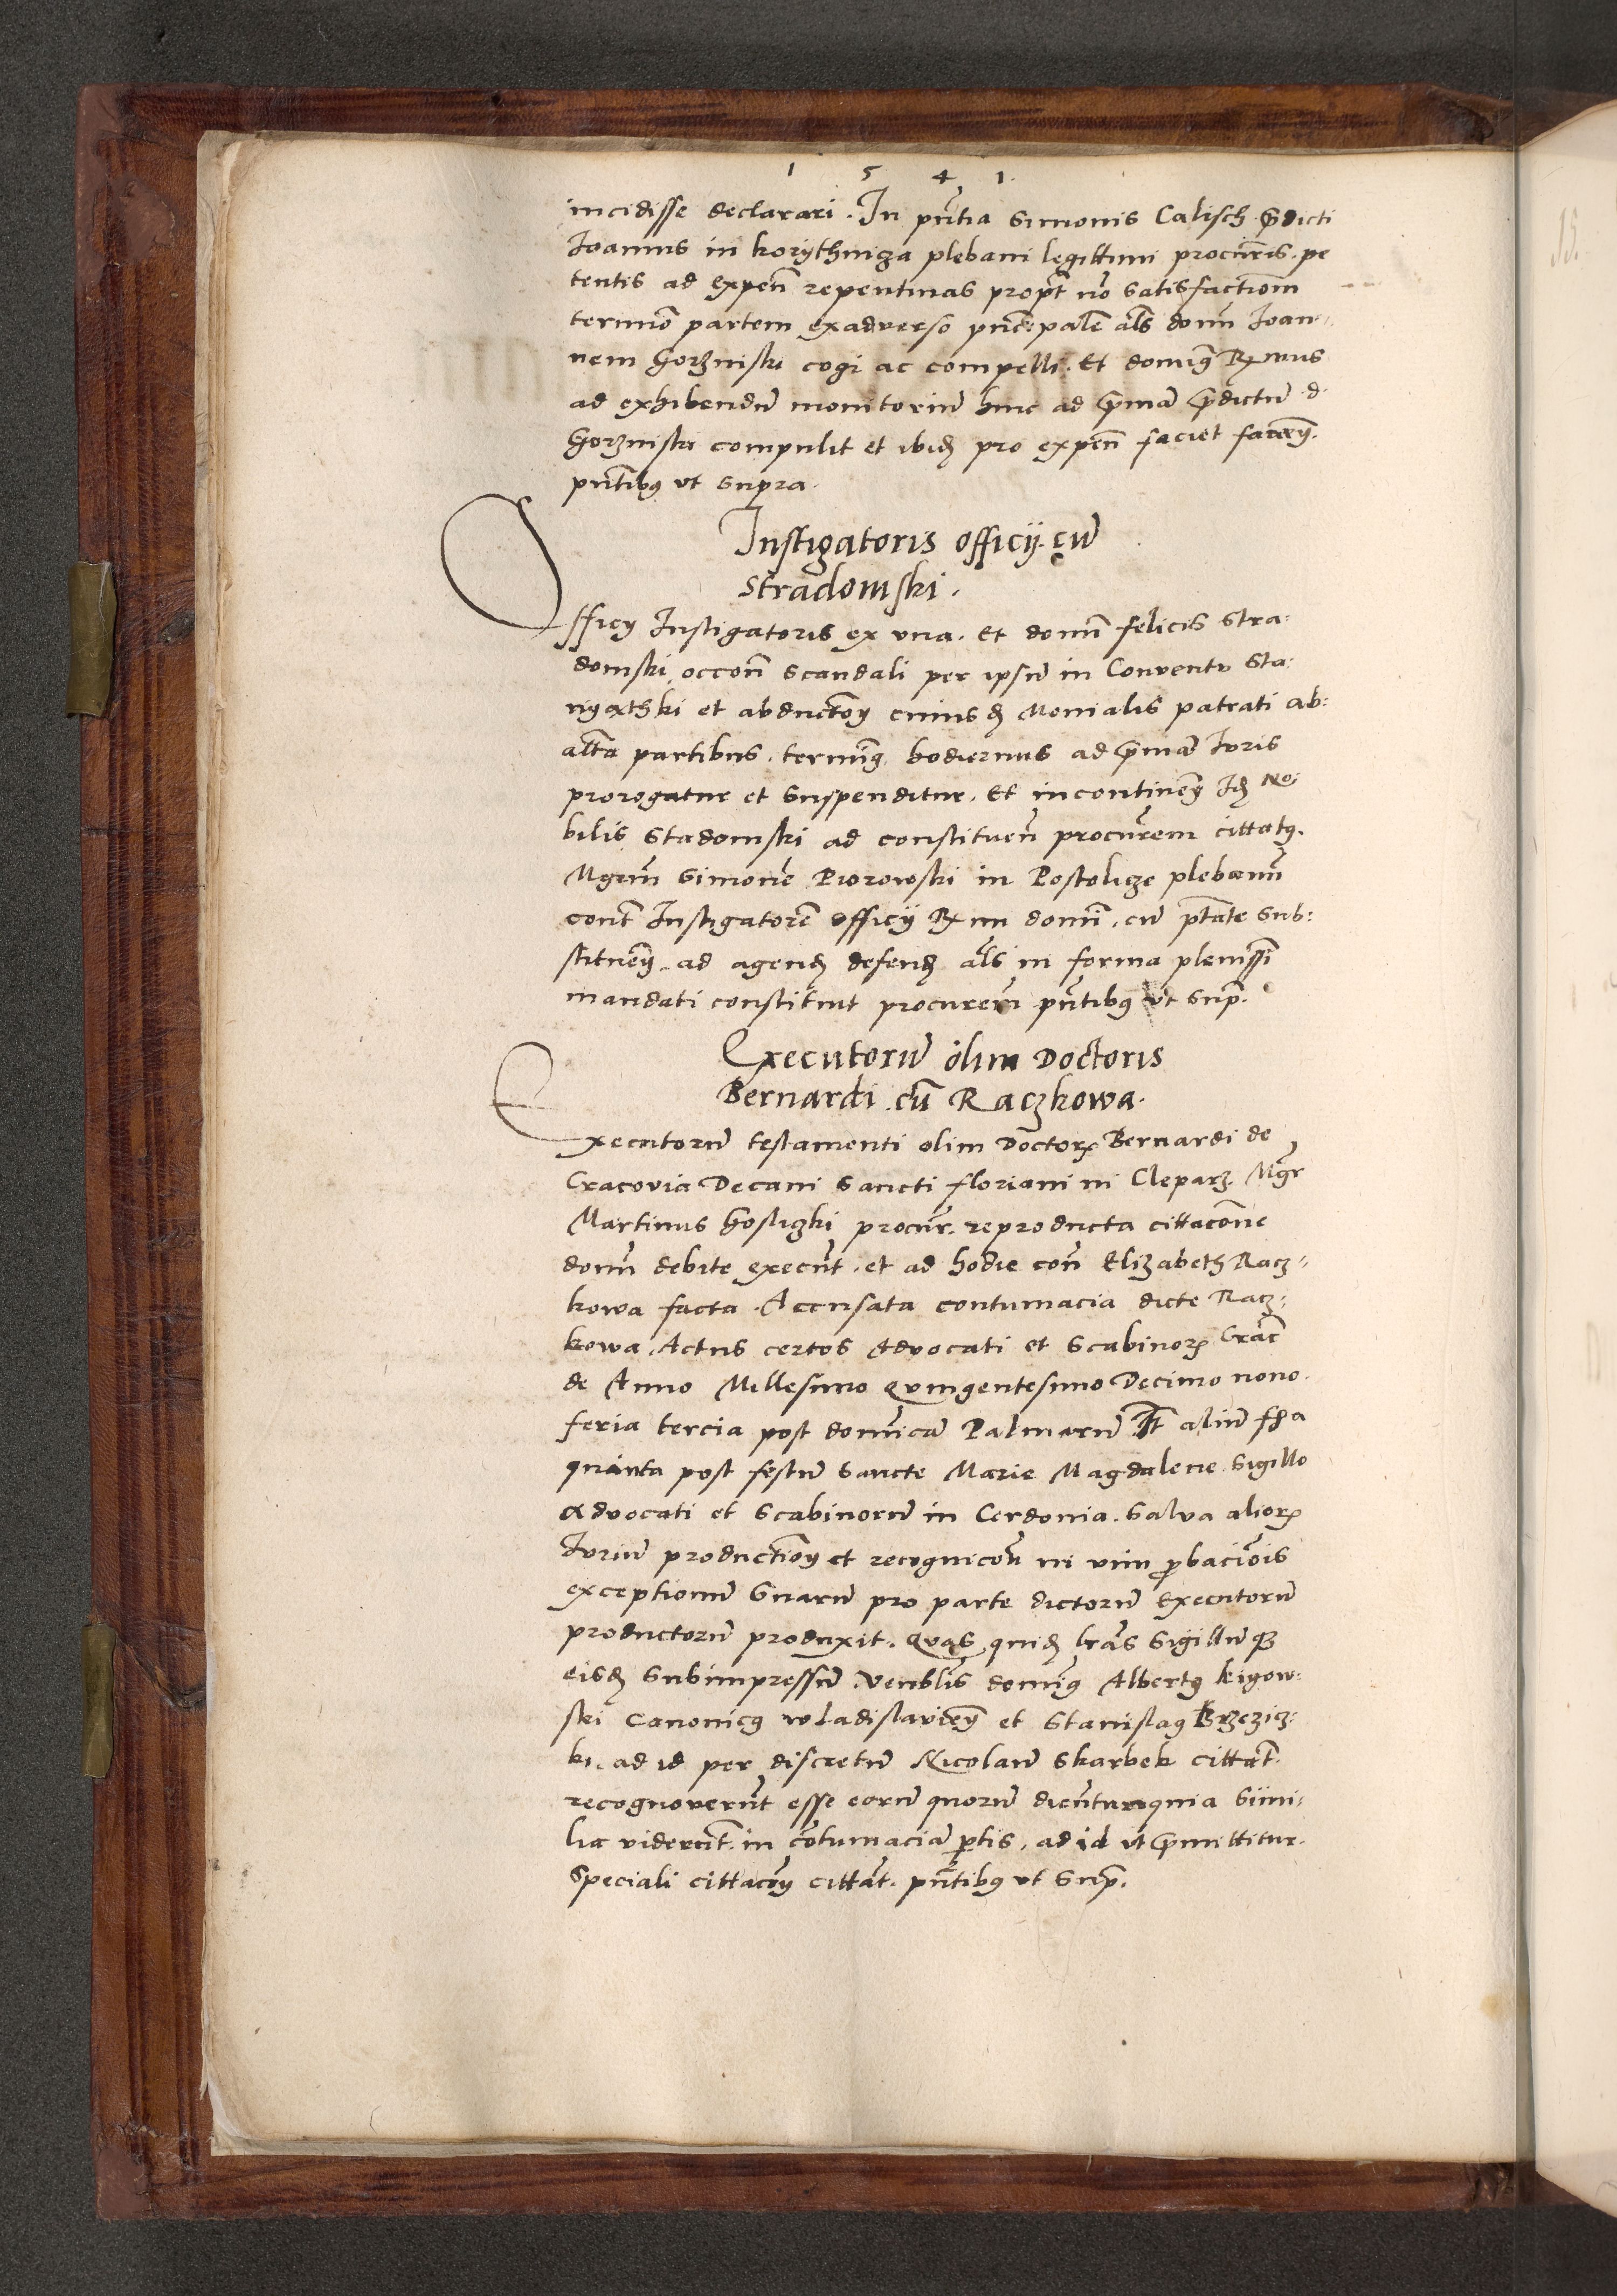 1 5 4 1.
incidisse declarari. In pñtia Simonis Calisch. p̃dicti
Ioannis in korythnicza plebani legittimi procur̃is. pe
tentis ad expen̄ repentinas propt̄ nō satisfactiōm
termīo partem exadverso prncipalē als domī Ioan
nem Gorzniski cogi ac compelli. Et domīg Rx mus
ad exhibendū monitoriū hinc ad p̃mā p̃dictū d.
Gorzniski compulit et ibid pro expen̄ faciet
pñtibus vt supra.
Instigatoris officij cū
Stradomski.
Officij Instigatoris ex vna. Et domī felicis Stra:
domski occōn̄ scandali per ipsū in Conventu Sta:
nyathki et abductōn cuiusd Monialis patrati ab:
alta partibus. termīg hodiernus ad p̃mā Iuris
prorogatur et suspenditur. Et incontineñ Id No:
bilis Stadomski ad constituen̄ procur̃em cittatus.
Mgrm̄ Simonē Piorowski in Postolicze plebanū
cont̄ Instigatorē officij Rx mi domī. cū ptāte sub:
stitueñ. ad agend defend als in forma plenissī
mandati constituit procurem̄ pñtibus vt sup̃.
Executorū olim Doctoris
Bernardi cū Raczkowa.
Executorū testamenti olim Doctorꝭ Bernardi de
Cracovia Decani Sancti floriani in Cleparz Mgr̄
Martinus Gosliczki procur̃. reproducta cittacōne
domī debite execut̄. et ad hodie con̄ Elizabeth Racz=
kowa facta. Accusata contumacia dicte Racz:
kowa Actus certos Advocati et Scabinorꝝ Crac̄
de Anno Millesimo Quingentesimo Decimo nono.
feria tercia post domīcā Palmarū It̄ aliū fra
quinta post festū Sancte Marie Magdalene. Sigillo
advocati et Scabinorū in Cerdonia. Salva aliorꝝ
Iuriū productiōn et recognicōn̄ in vim p̱baciōis
exceptionū Suarū pro parte dictorū Executorū
productorū produxit. Quas quid lrās Sigillū qz
eisd subimpressū. Venblīs domīg Albertus kigow:
ski Canonicus wladislavieñ et Stanislaus Brzezicz:
ki. ad id per discretū Nicolaū Skarbek cittat̄.
recognoverūt esse eorū quorū dicūtur quia Simi:
lia viderūt. in cōtumaciā p̱tis. ad id vt p̃mittitur.
Speciali cittacōn cittat̄. pñtibus vt sup̃.